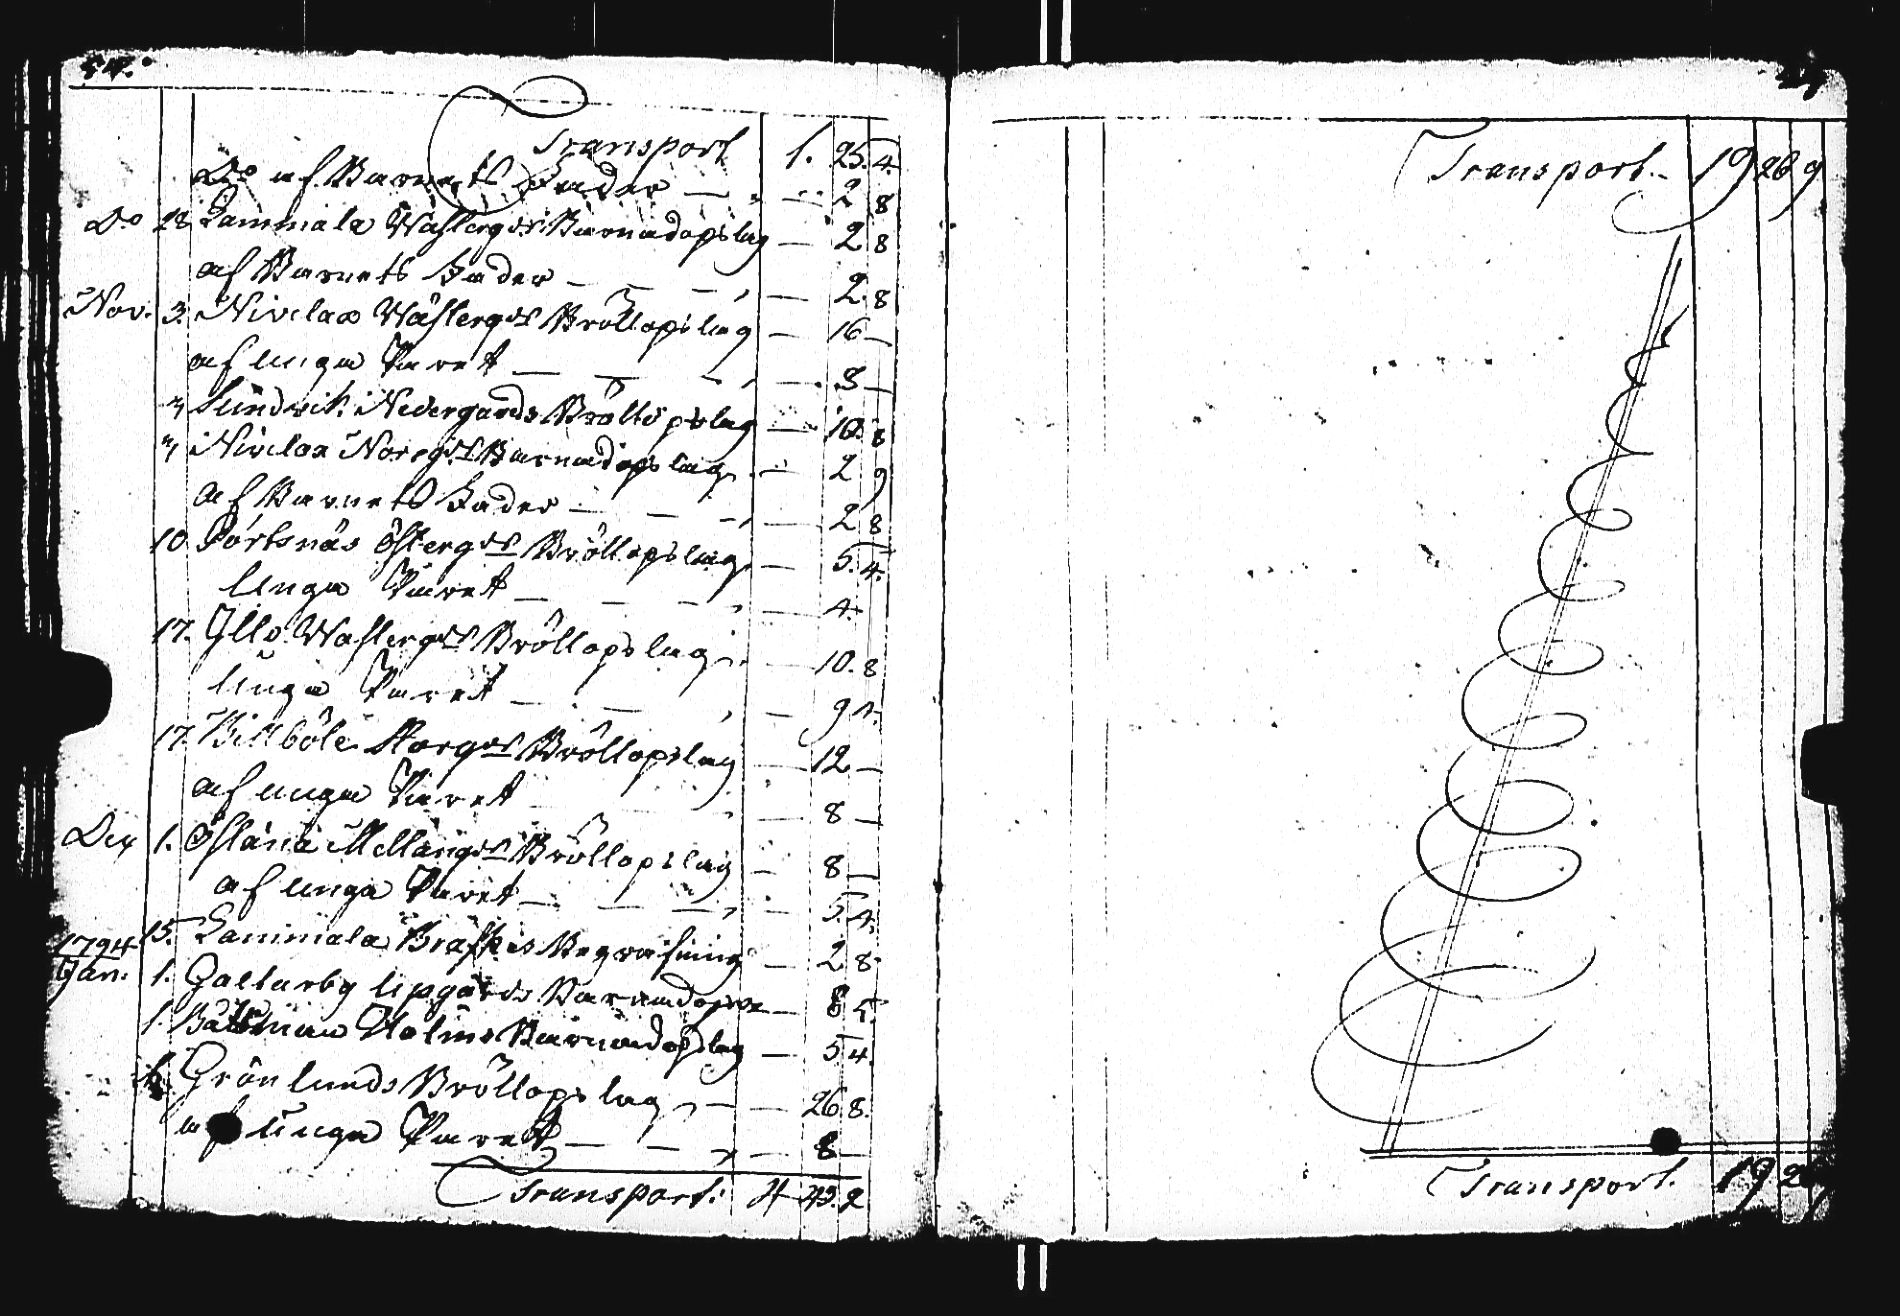 54.
Transport 1. 25. 4.
Do af Barnets Fader — 2 8
Do 18 Lammala Wästergds Barnadopslag — 2 8
af Barnets Fader — 2. 8
Nov. 3. Nivelax Wästergds Bröllopslag — 16 —
af unga Paret — 8 —
" Sundvik Nedergårds Bröllopslag — 10 8
" Nivelax Norrgds Barnadopslag — 2 9
af Barnets Fader — 2 8
10 Pörtsnäs Östergds Bröllopslag — 5. 4.
Unga Paret — 4.
17. Illo Wästergds Bröllopslag — 10. 8
Unga Paret — 9
17. Billböle Storgds Bröllopslag — 12 —
af unga Paret — 8 —
Dec 1. Östanå Mellangds Bröllopslag — 8 —
af unga Paret — 5. 4.
15. Lammala Bräskes Begrafning — 2 8
1794
Jan. 1. Galtarby Uppgårds — 8 5.
1. Båtsman Holms Barnadopslag — 5 4.
Grönlunds Bröllopslag — 26. 8.
af unga Paret — 8 —
Transport: 4 43. 2
Transport. 19 28 9
Transport. 19